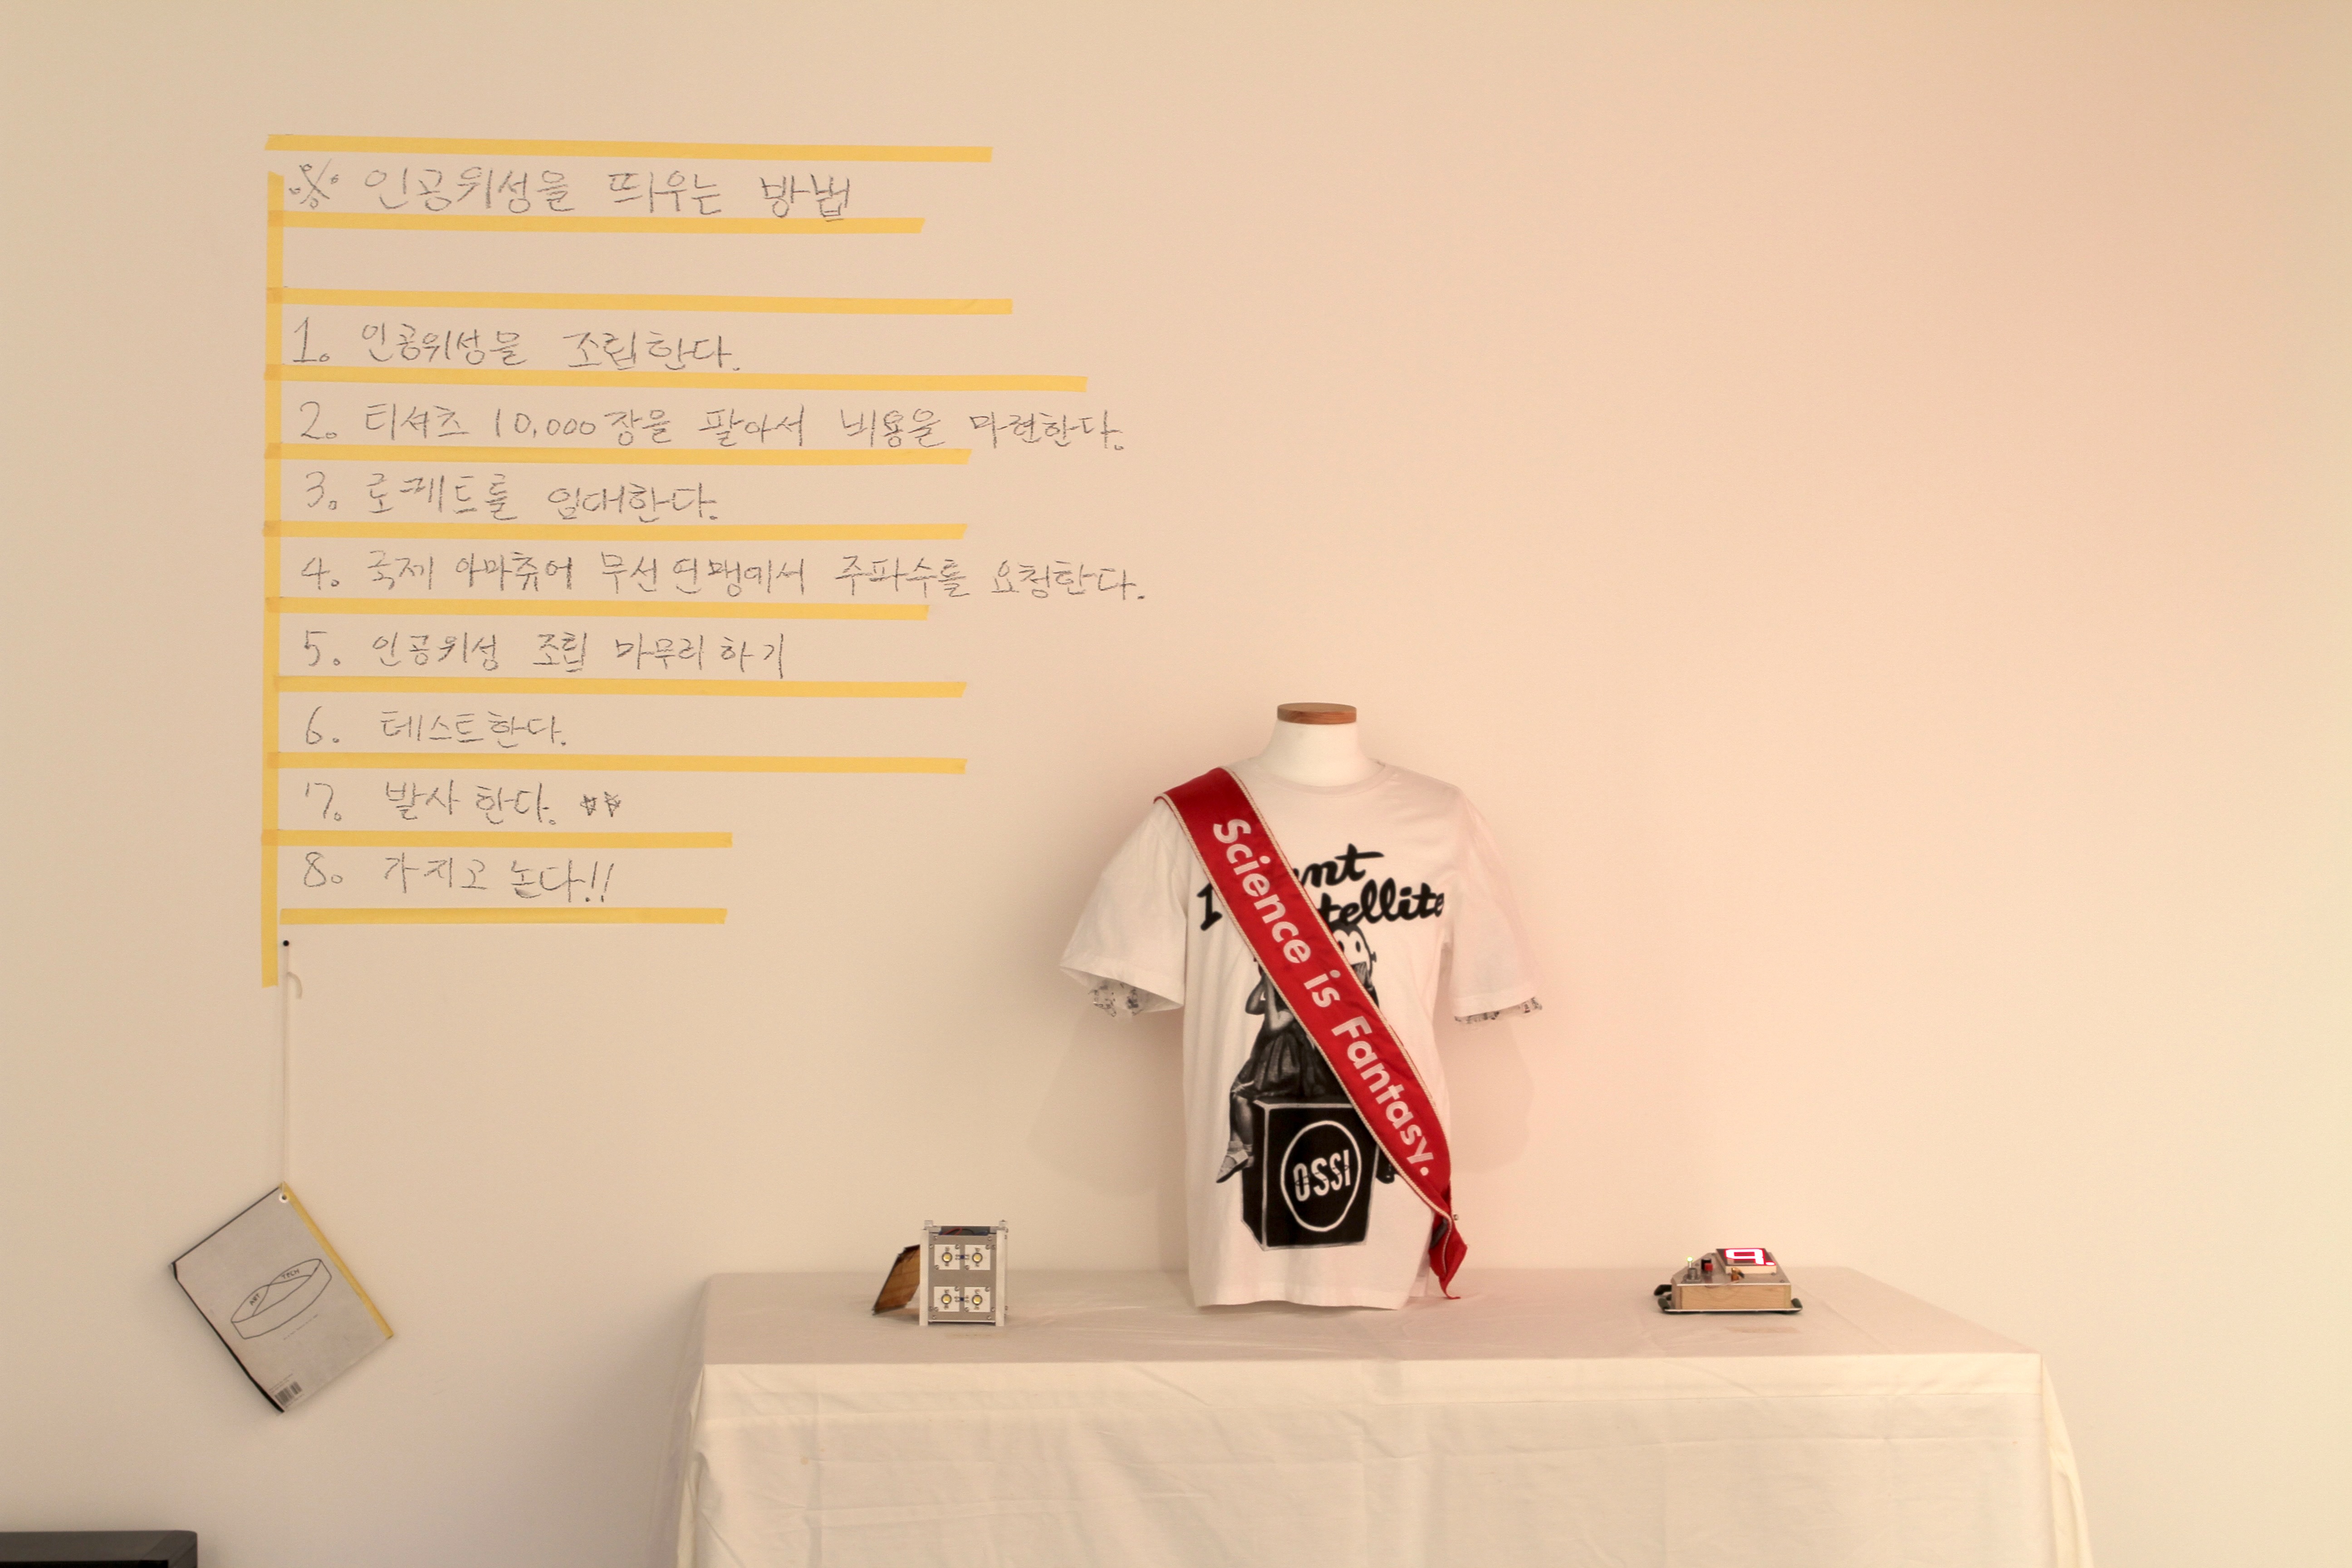 ※ 인공위성을 띄우는 방법
1. 인공위성을 조립한다.
2. 티셔츠 10,000장을 팔아서 비용을 마련한다.
3. 로케트를 임대한다.
4. 국제 아마츄어 무선 연맹에서 주파수를 요청한다.
5. 인공위성 조립 마무리하기
6. 테스트한다.
7. 발사한다. ☆☆
8. 가지고 논다!!
Science is Fantasy.
OSSI
ART TECH